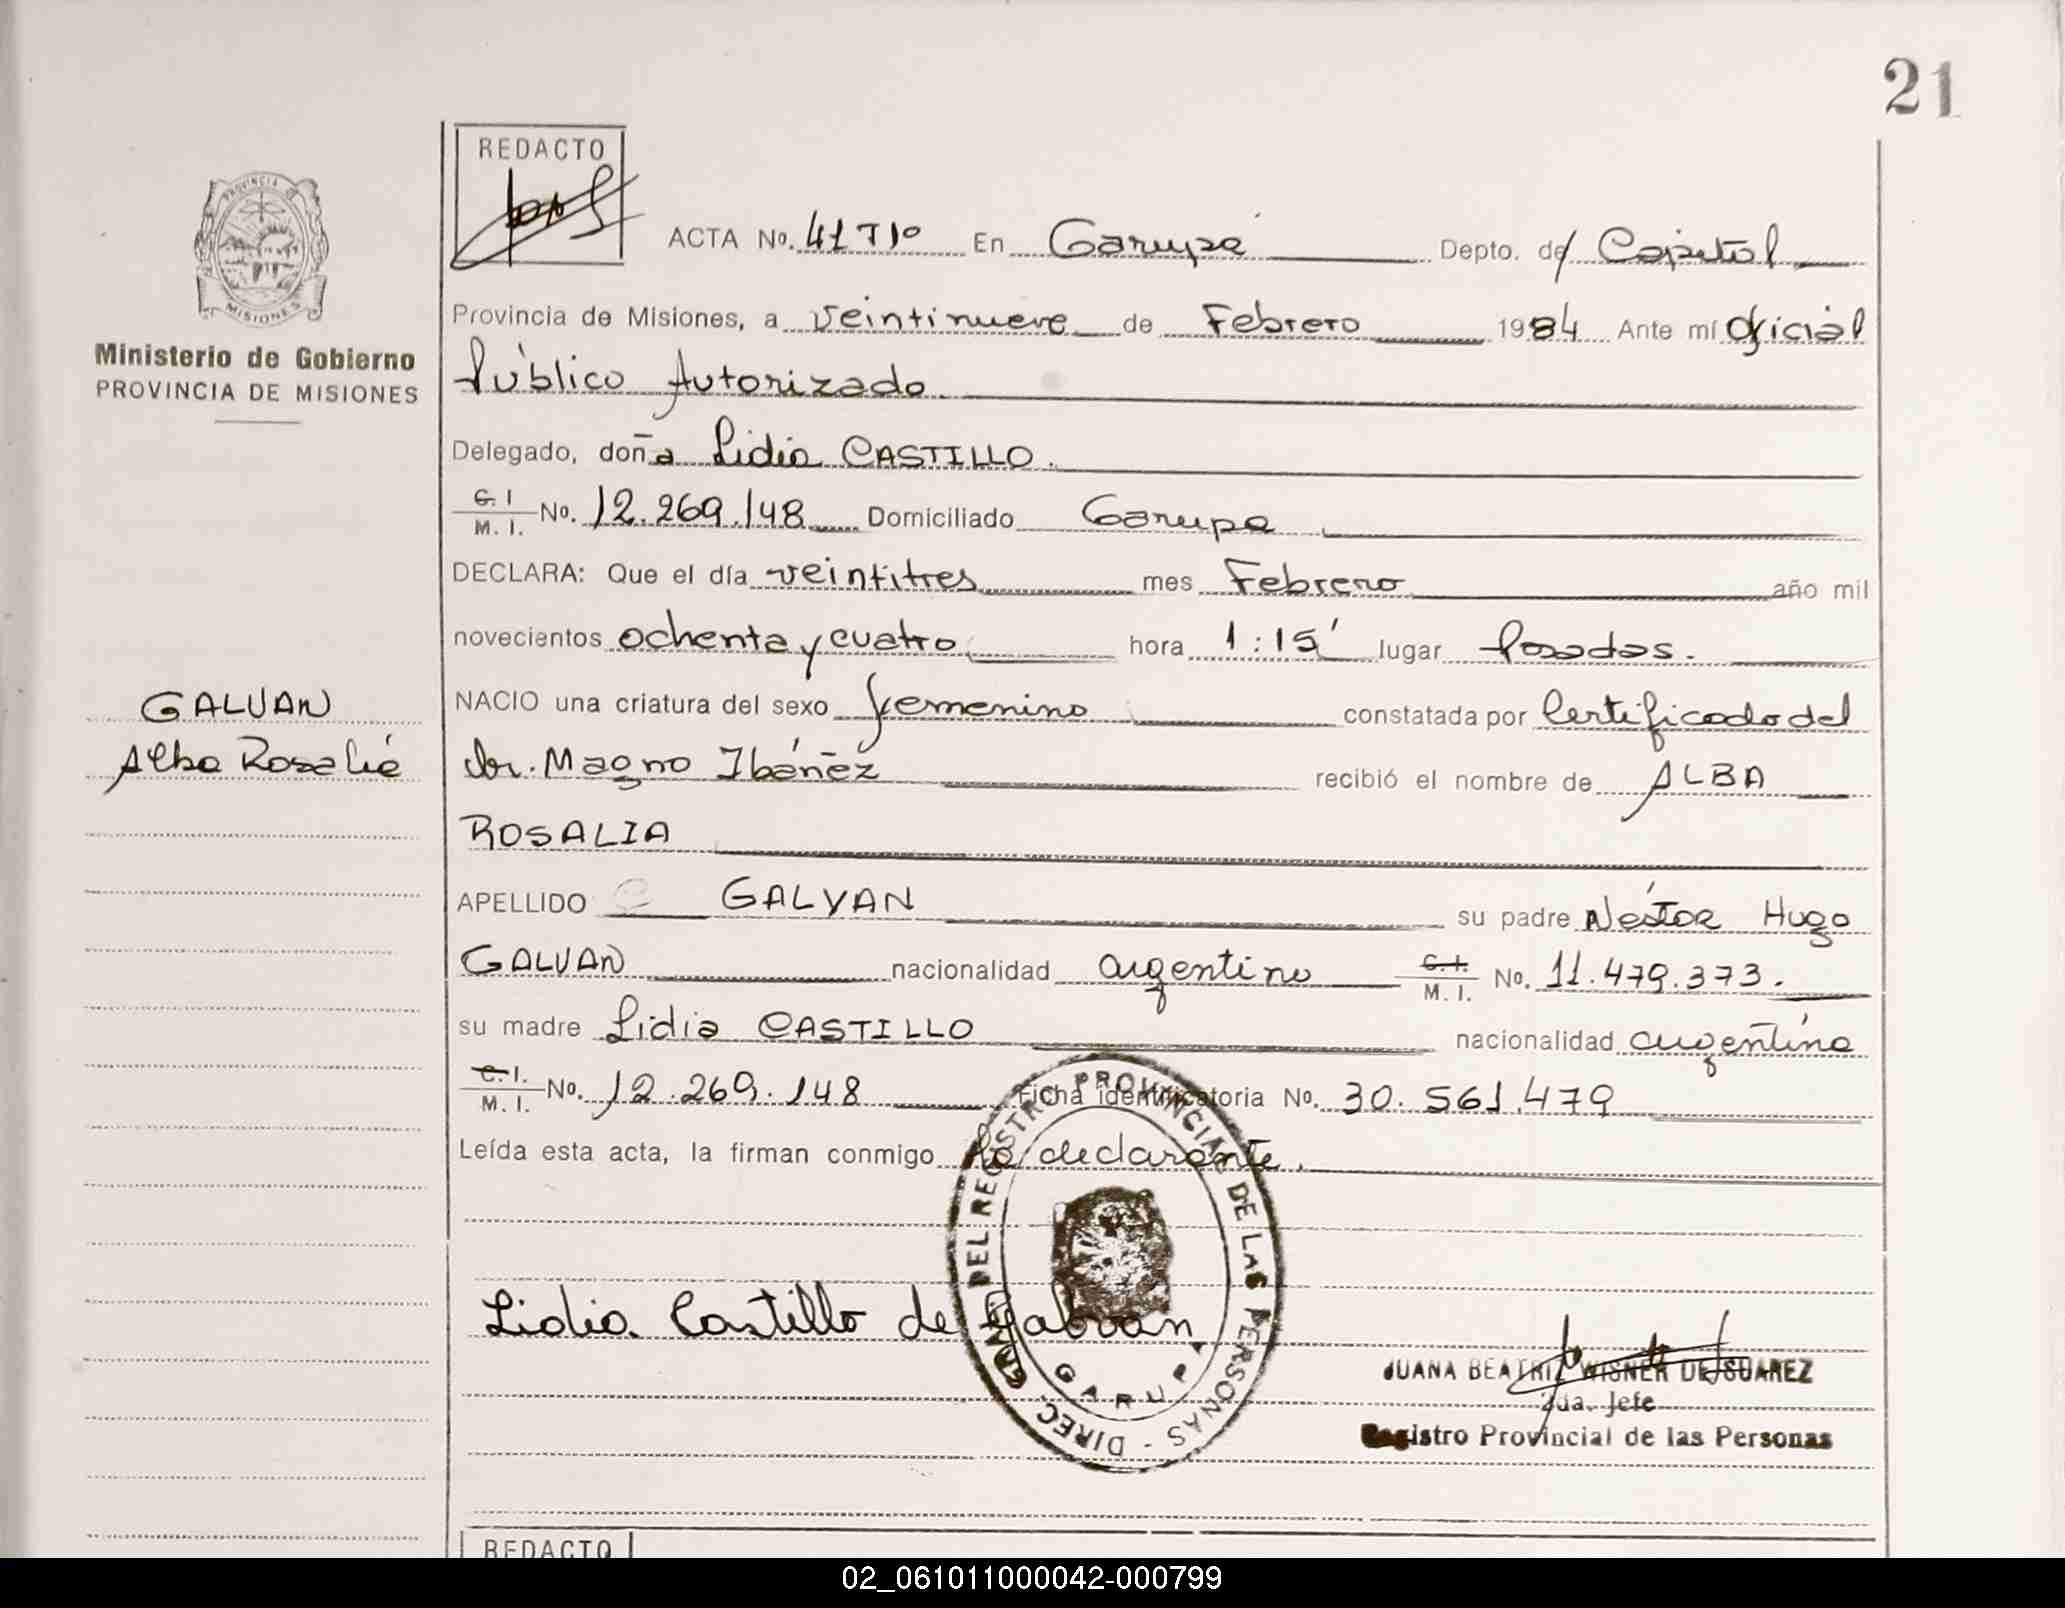 21
REDACTO
PROVINCIA DE
MISIONES
Ministerio de Gobierno
PROVINCIA DE MISIONES
ACTA No. 41 TIº En Garupá Depto. de Capital
Provincia de Misiones, a veintinueve de Febrero 1984 Ante mí Oficial
Público Autorizado
Delegado, doña Lidia CASTILLO.
C. I. M. I. No. 12.269.148 Domiciliado Garupa
DECLARA: Que el día veintitres mes Febrero año mil
novecientos ochenta y cuatro hora 1:15' lugar Posadas.
NACIO una criatura del sexo femenino constatada por Certificado del
Dr. Magno Ibáñez recibió el nombre de ALBA
ROSALIA
GALVAN
Alba Rosalía
APELLIDO GALVAN su padre Néstor Hugo
GALVAN nacionalidad argentino C. I. M. I. No. 11.479.373.
su madre Lidia CASTILLO nacionalidad argentina
C. I. M. I. No. 12.269.148 Ficha identificatoria No. 30.561.479
Leída esta acta, la firman conmigo la declarante.
DIREC. GRAL. DEL REGISTRO PROVINCIAL DE LAS PERSONAS
GARUPA
Lidia Castillo de Galvan
JUANA BEATRIZ WISNER DE SUAREZ
2da. Jefe
Registro Provincial de las Personas
REDACTO
02_061011000042-000799